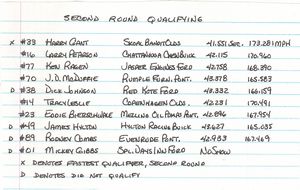 SECOND ROUND QUALIFYING
X #33 HARRY GANT SKOAL BANDIT OLDS 41.551 SEC. 173.281 MPH
#16 LARRY PEARSON CHATTANOOGA CHEW BUICK 42.115 170.960
#77 KEN RAGEN JASPER ENGINES FORD 42.758 168.390
#70 J.D. McDUFFIE RUMPLE FURN. PONT. 43.378 165.983
D #38 DICK JOHNSON RED KOTE FORD 43.332 166.159
#14 TRACY LESLIE COPENHAGEN OLDS. 42.231 170.491
D #23 EDDIE BIERSCHWALE OIL PONT. 42.896 167.954
D #49 JAMES HYLTON HYLTON RACING BUICK 43.627 165.035
D #89 RODNEY COMBS EVENRODE PONT. 42.983 167.469
D #01 MICKEY GIBBS DAYS INN FORD NO SHOW
X DENOTES FASTEST QUALIFIER, SECOND ROUND
D DENOTES DID NOT QUALIFY